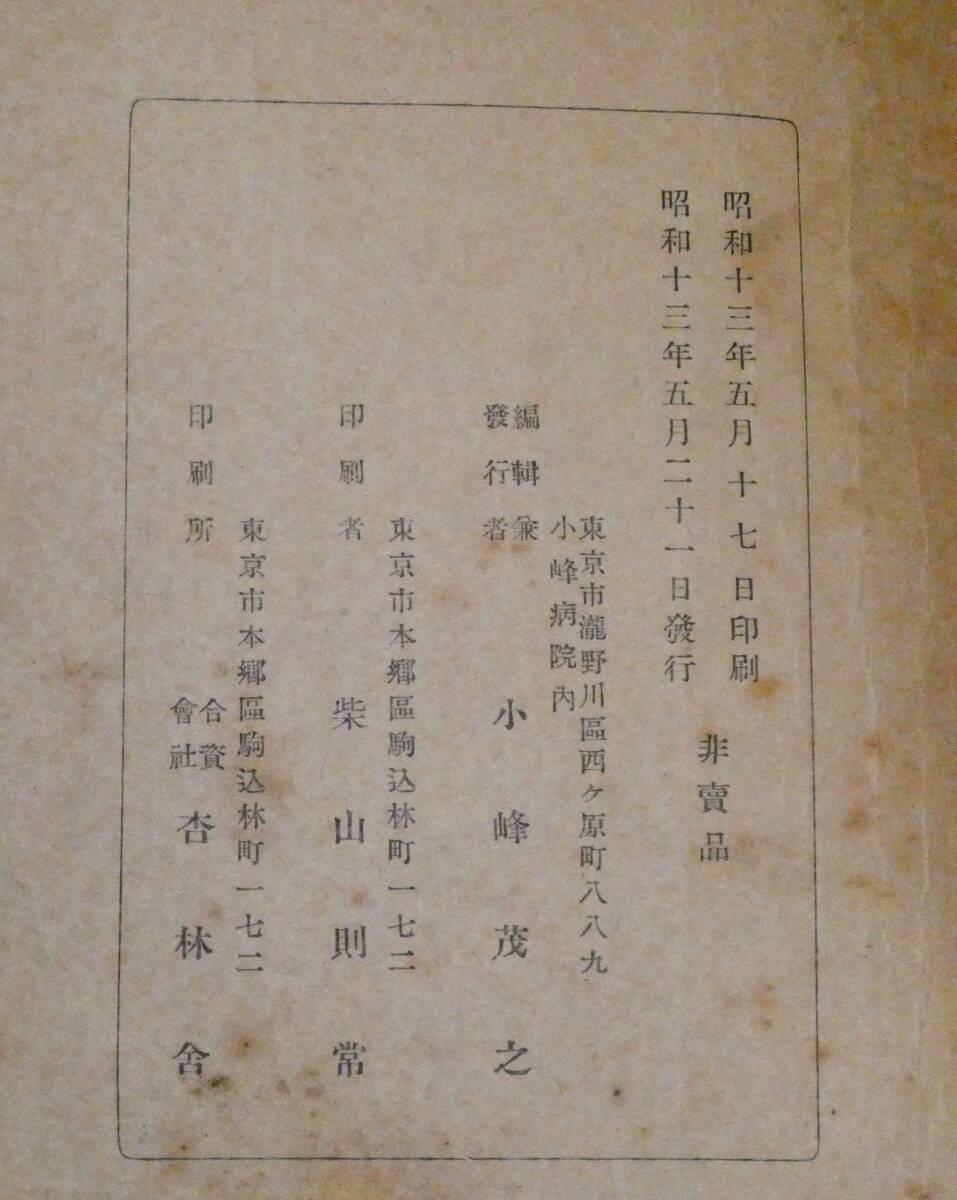 昭和十三年五月十七日印刷
昭和十三年五月二十一日發行
非賣品
東京市瀧野川區西ケ原町八八九
小峰病院內
編輯兼
發行者
小峰茂之
東京市本鄕區駒込林町一七二
印刷者
柴山則常
東京市本鄕區駒込林町一七二
印刷所
合資
會社
杏林舍